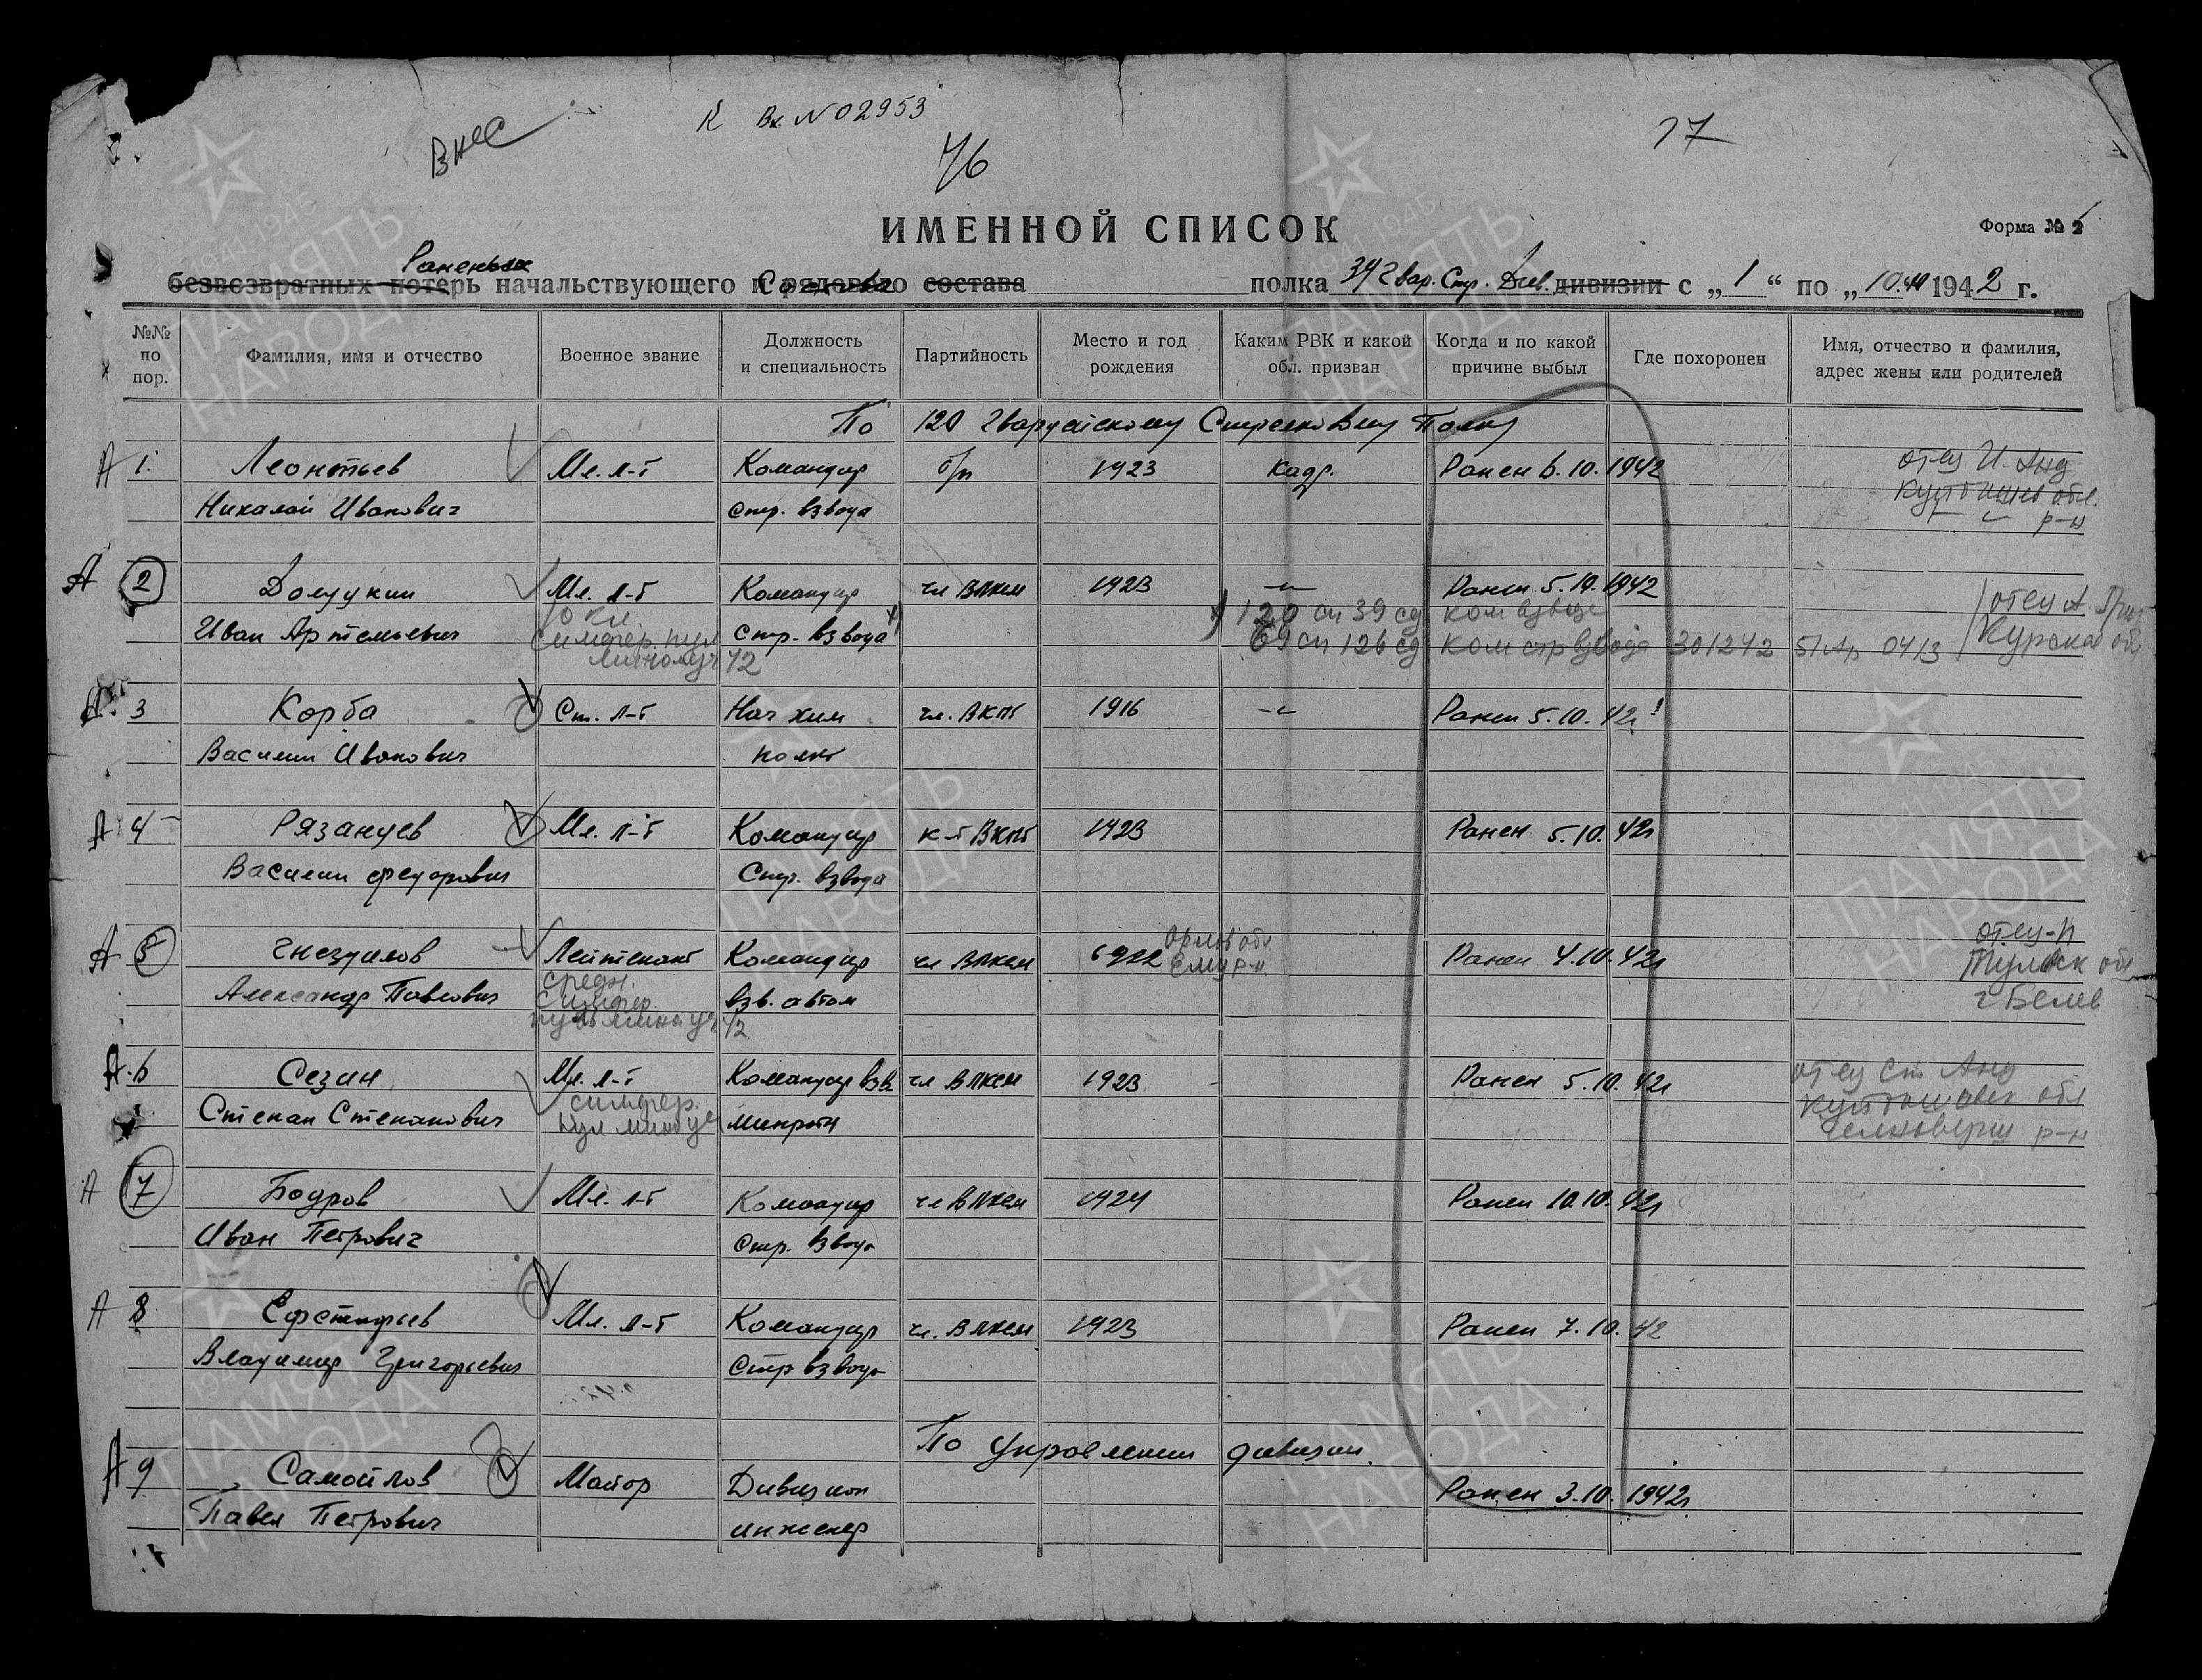 Внес
К Вх. N 02953
76
17
ИМЕННОЙ СПИСОК
Форма № 2
Раненых
безвозвратных потерь начальствующего и рядового состава
полка 39 Гвар. Стр. Див. дивизии с „1“ по „10.10“ 1942 г.
№№ по пор.
Фамилия, имя и отчество
Военное звание
Должность и специальность
Партийность
Место и год рождения
Каким РВК и какой обл. призван
Когда и по какой причине выбыл
Где похоронен
Имя, отчество и фамилия, адрес жены или родителей
По 120 Гвардейскому Стрелковому Полку
А 1. Леонтьев Мл. л-т Командир б/п 1923 кадр. Ранен 6.10.1942 отец И. Анд
Николай Иванович стр. взвода Куйбышев обл.
р-н
А 2 Долудкин Мл. л-т Командир чл ВЛКСМ 1923 -"- Ранен 5.10.1942
10 кл. 120 сп 39 сд ком взвода отец А
Иван Артемьевич Симфер. пул стр. взвода 69 сп 126 сд ком стр взвода 301242 51 Ар 0413 Курская об
42
А. 3 Корба Ст. л-т Нач хим чл. ВКПб 1916 -"- Ранен 5.10.42г
Василий Иванович полка
А 4 Рязанцев Мл. л-т Командир к-т ВКПб 1923 Ранен 5.10.42г
Василий Федорович Стр. взвода
А 5 Гнездилов Лейтенант Командир чл ВЛКСМ 1922 Орлов обл Ранен 4.10.42г отец-П
средн. р-н Тульск обл
Александр Павлович Симфер. взв. автом г Белев
42
А. 6 Сезин Мл. л-т Командир взв. чл ВЛКСМ 1923 Ранен 5.10.42г отец Ст. Анд
симфер. Куйбышевск обл
Степан Степанович пул мин уч минроты Челновершин р-н
А 7 Бодров Мл. л-т Командир чл ВЛКСМ 1924 Ранен 10.10.42г
Иван Петрович стр. взвода
А 8 Евстафьев Мл. л-т Командир чл. ВЛКСМ 1923 Ранен 7.10.42
Владимир Григорьевич Стр взвода
По управлению дивизии.
А 9 Самойлов Майор Дивизион Ранен 3.10.1942г
Павел Петрович инженер
ПАМЯТЬ НАРОДА
1941 1945